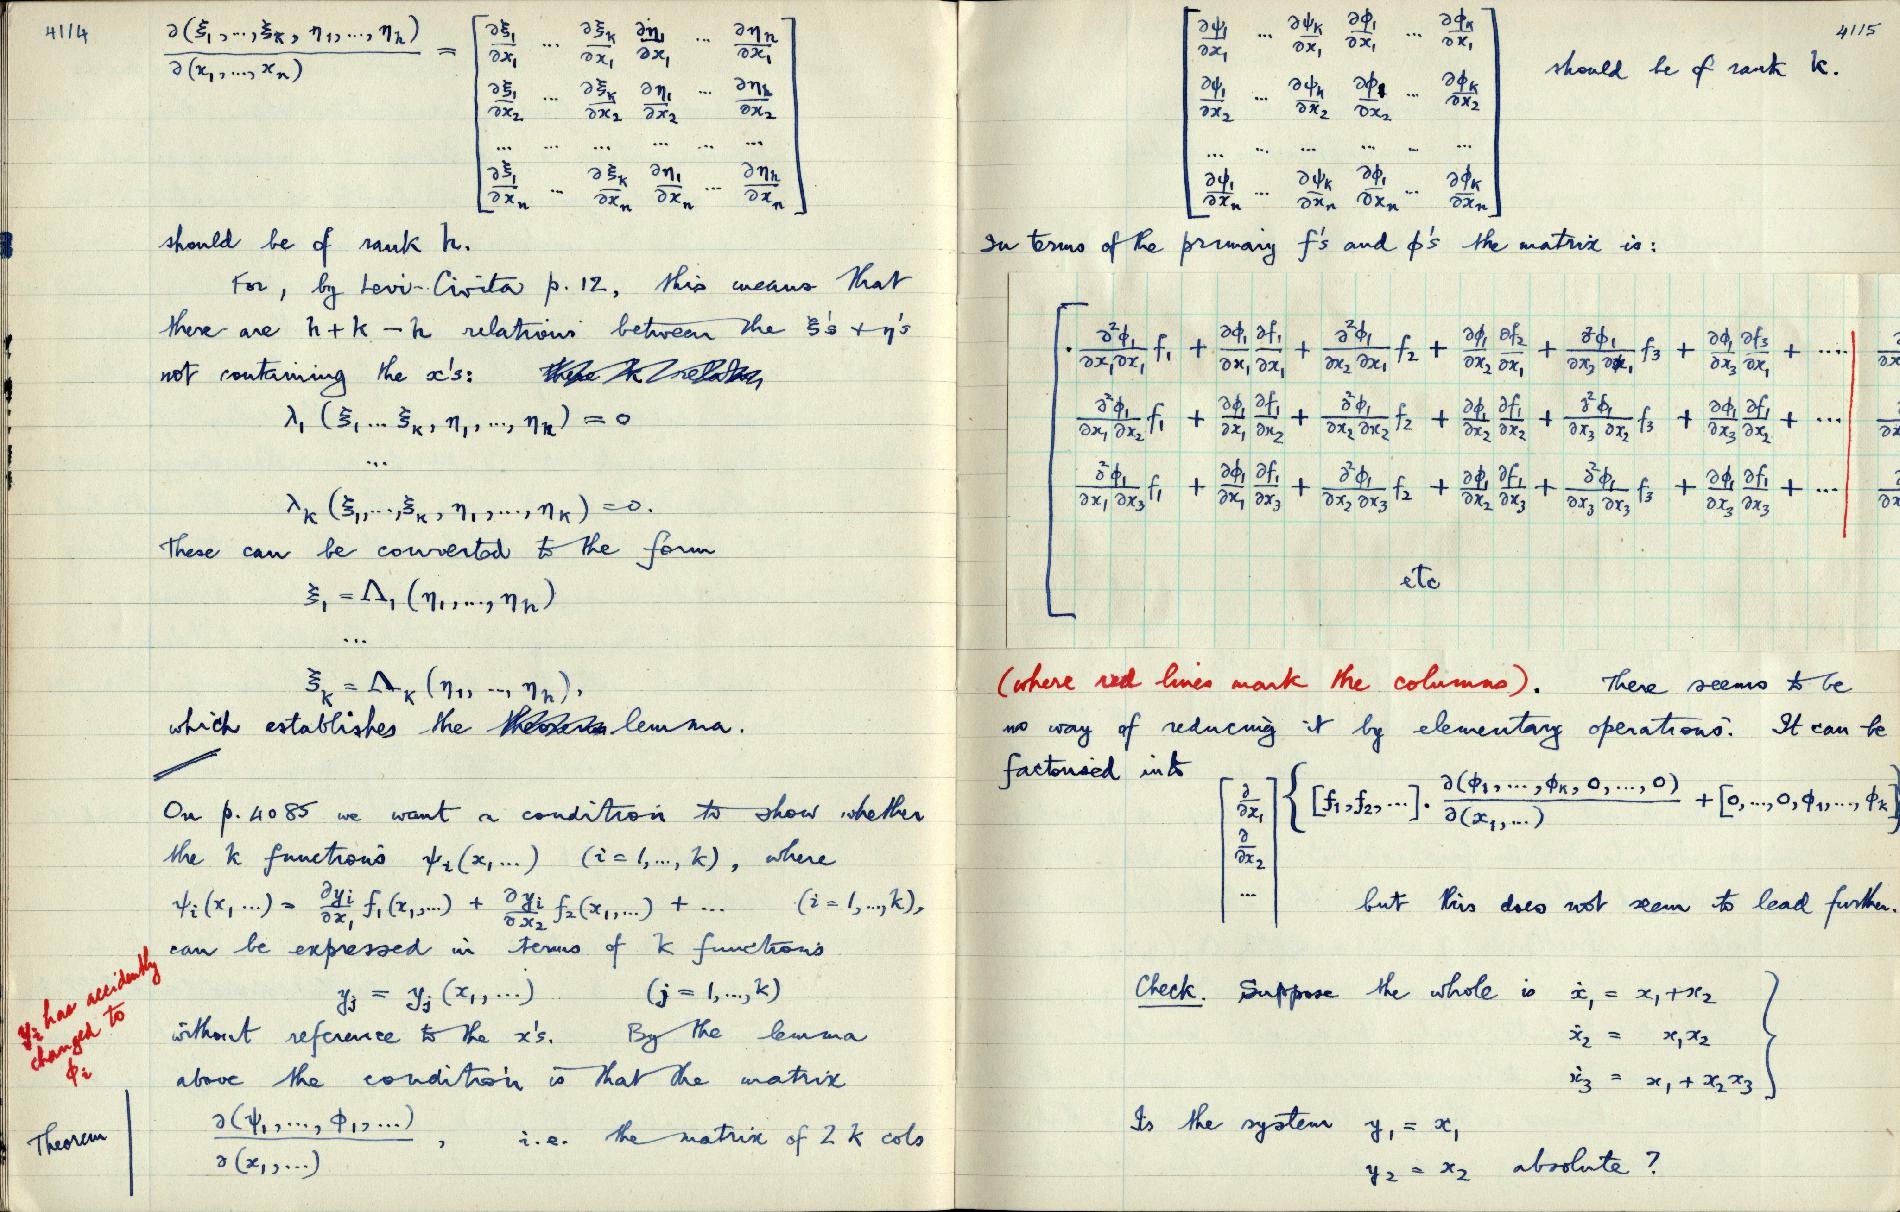 4114
∂(ξ₁,...,ξₖ, η₁,...,ηₕ) / ∂(x₁,...,xₙ) = [ ∂ξ₁/∂x₁ ... ∂ξₖ/∂x₁ ∂η₁/∂x₁ ... ∂ηₕ/∂x₁
∂ξ₁/∂x₂ ... ∂ξₖ/∂x₂ ∂η₁/∂x₂ ... ∂ηₕ/∂x₂
... ... ... ... ... ...
∂ξ₁/∂xₙ ... ∂ξₖ/∂xₙ ∂η₁/∂xₙ ... ∂ηₕ/∂xₙ ]
should be of rank h.
For, by Levi-Civita p.12, this means that
there are h+k−h relations between the ξ's + η's
not containing the x's:
λ₁ (ξ₁...ξₖ, η₁,..., ηₕ) = 0
...
λₖ (ξ₁,...,ξₖ, η₁,..., ηₖ) = 0.
These can be converted to the form
ξ₁ = Λ₁ (η₁,..., ηₕ)
...
ξₖ = Λₖ (η₁, ..., ηₕ),
which establishes the lemma.
On p.4085 we want a condition to show whether
the k functions ψᵢ(x₁...) (i = 1,..., k), where
ψᵢ(x₁...) = ∂yᵢ/∂x₁ f₁(x₁,...) + ∂yᵢ/∂x₂ f₂(x₁,...) + ... (i = 1,...,k),
can be expressed in terms of k functions
yⱼ = yⱼ (x₁,...) (j = 1,...,k)
without reference to the x's. By the lemma
above the condition is that the matrix
yᵢ has accidently
changed to
φᵢ
Theorem
∂(ψ₁,..., φ₁,...) / ∂(x₁,...) , i.e. the matrix of 2k cols
4115
[ ∂ψ₁/∂x₁ ... ∂ψₖ/∂x₁ ∂φ₁/∂x₁ ... ∂φₖ/∂x₁
∂ψ₁/∂x₂ ... ∂ψₖ/∂x₂ ∂φ₁/∂x₂ ... ∂φₖ/∂x₂
... ... ... ... ... ...
∂ψ₁/∂xₙ ... ∂ψₖ/∂xₙ ∂φ₁/∂xₙ ... ∂φₖ/∂xₙ ]
should be of rank k.
In terms of the primary f's and φ's the matrix is:
[ ∂²φ₁/∂x₁∂x₁ f₁ + ∂φ₁/∂x₁ ∂f₁/∂x₁ + ∂²φ₁/∂x₂∂x₁ f₂ + ∂φ₁/∂x₂ ∂f₂/∂x₁ + ∂²φ₁/∂x₃∂x₁ f₃ + ∂φ₁/∂x₃ ∂f₃/∂x₁ + .... |
∂²φ₁/∂x₁∂x₂ f₁ + ∂φ₁/∂x₁ ∂f₁/∂x₂ + ∂²φ₁/∂x₂∂x₂ f₂ + ∂φ₁/∂x₂ ∂f₁/∂x₂ + ∂²φ₁/∂x₃∂x₂ f₃ + ∂φ₁/∂x₃ ∂f₁/∂x₂ + ... |
∂²φ₁/∂x₁∂x₃ f₁ + ∂φ₁/∂x₁ ∂f₁/∂x₃ + ∂²φ₁/∂x₂∂x₃ f₂ + ∂φ₁/∂x₂ ∂f₁/∂x₃ + ∂²φ₁/∂x₃∂x₃ f₃ + ∂φ₁/∂x₃ ∂f₁/∂x₃ + ... |
etc
(where red lines mark the columns). There seems to be
no way of reducing it by elementary operations. It can be
factorised into
[ ∂/∂x₁ ∂/∂x₂ ... ] { [f₁, f₂, ...] . ∂(φ₁, ..., φₖ, 0, ..., 0) / ∂(x₁,...) + [0,...,0, φ₁,..., φₖ]
but this does not seem to lead further.
Check. Suppose the whole is ẋ₁ = x₁ + x₂
ẋ₂ = x₁x₂
ẋ₃ = x₁ + x₂x₃ }
Is the system y₁ = x₁
y₂ = x₂ absolute?